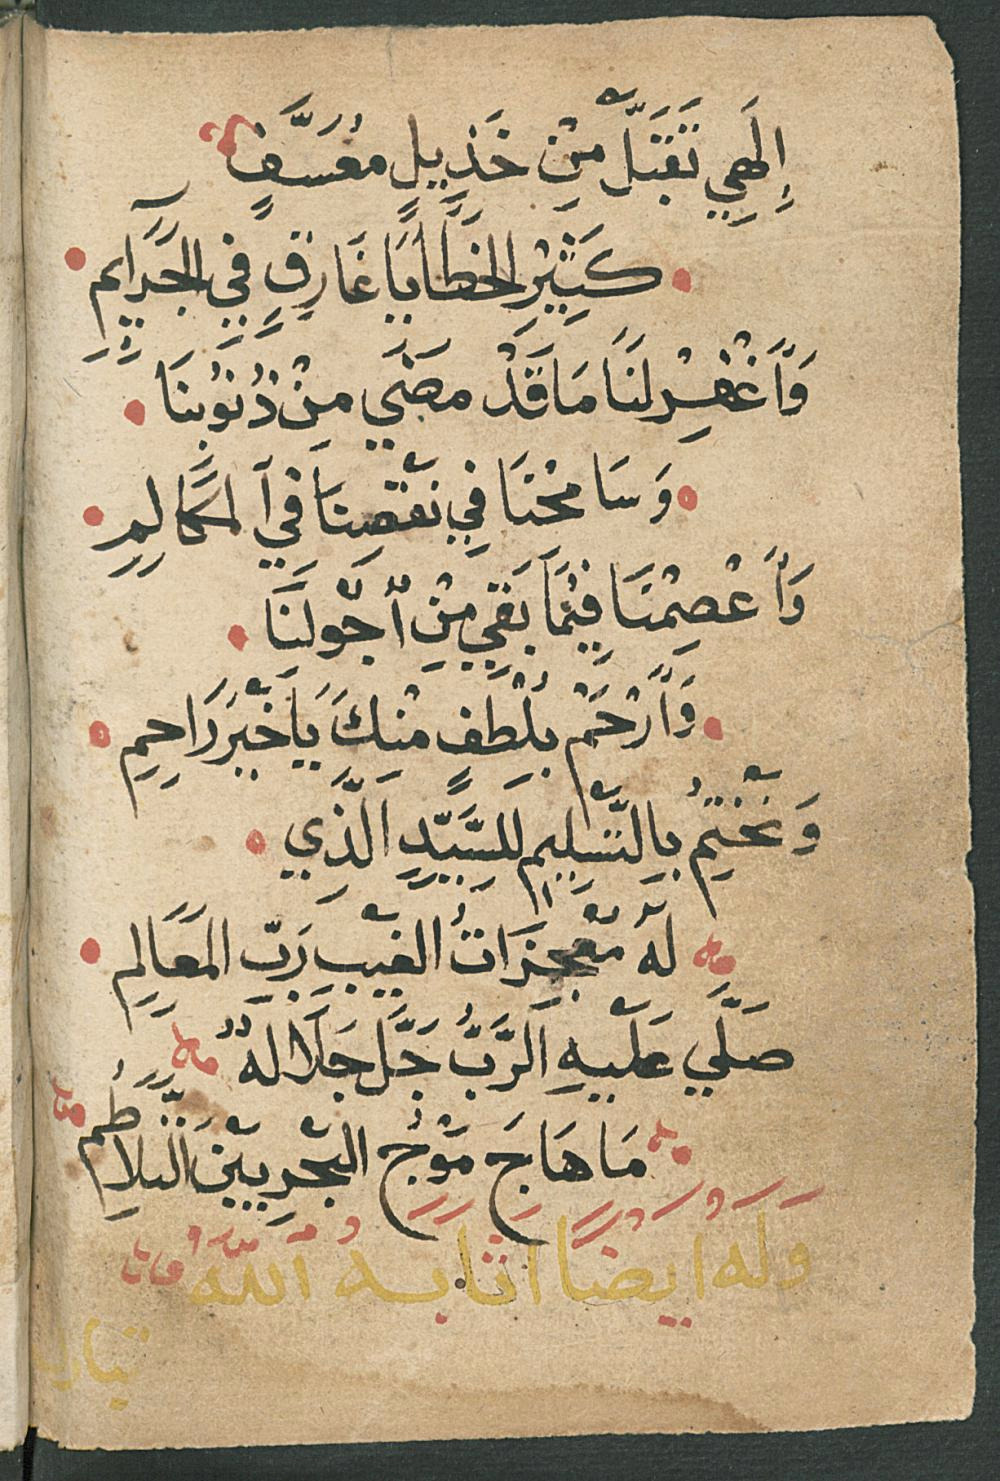 إِلَهِي تَقَبَّلْ مِنْ خَذِيلٍ مُعَسَّفٍ
كَثِيْرِ الخَطَايَا غَارِقٍ فِي الجَرَايِمِ
وَأَغْفِرْ لَنَا مَا قَدْ مَضَي مِنْ ذُنُوبِنَا
وَسَامِحْنَا فِي نَقْصِنَا فِي الْكَمَالِمِ
وَأَعْصِمْنَا فِيْمَا بَقِي مِنْ أُجُولَنَا
وَأَرْحَمْ بِلُطْفٍ مِنْكَ يَا خَيْرَ رَاحِمِ
وَنَخْتِمُ بِالتَّسْلِيمِ لِلسَّيِّدِ الَّذِي
لَهُ مُعْجِزَاتُ الغَيْبِ رَبِّ المَعَالِمِ
صَلَّي عَلَيْهِ الرَّبُّ جَلَّ جَلَالَهُ
مَا هَاجَ مَوْجُ البَحْرِ بَيْنَ التَّلَاطُمِ
وَلَهُ أَيْضًا أَثَابَهُ اللَّهُ
تبارك